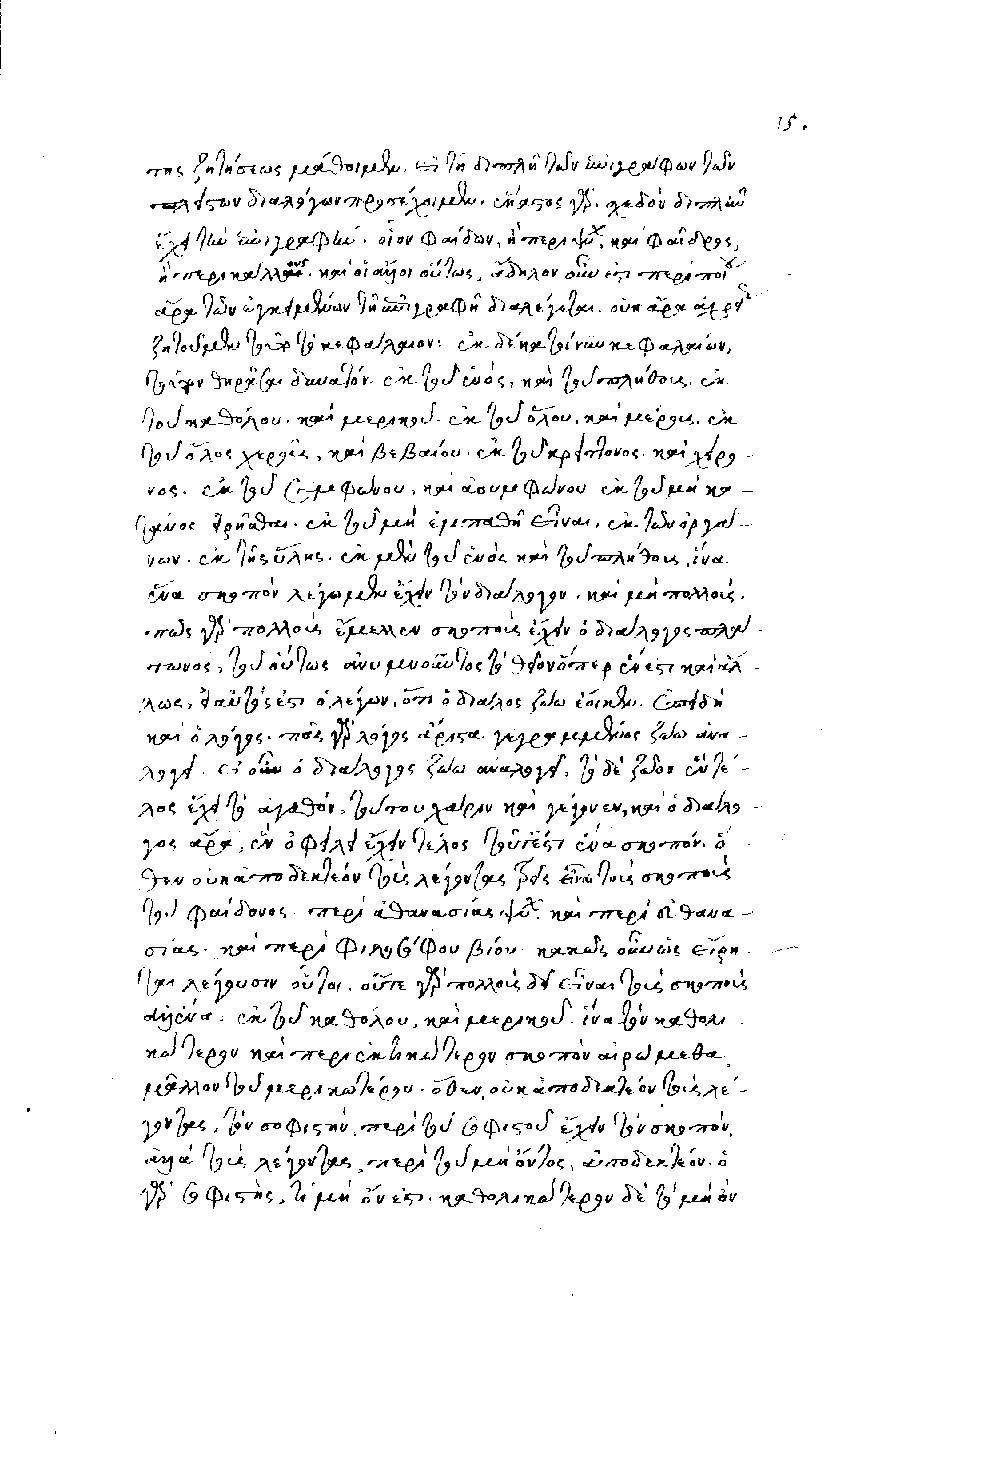 15.
της ζητήσεως μάθοιμεν. εἰ τῆ διπλῆ τῶν ἐπιγράφων τῶν
πλάτωνος διαλόγων προσέχοιμεν. ἕκαστος γὰρ. χεδὸν διπλῆν
ἔχει τὴν ἐπιγραφήν. οἷον φαίδων, ἢ περὶ ψυχῆς, καὶ φαῖδρος,
ἢ περὶ κάλλους. καὶ οἱ ἄλλοι οὕτως, ἄδηλον οὖν ἐστι περὶ ποίου
ἄρα τῶν ἐγκειμένων τῆ ἐπιγραφῆ διαλέγεται. οὐκ ἄρα
ζητοῦμεν τὸ κεφάλαιον: ἐκ δέκα τίνων κεφαλαίων,
τοῦτον θηρᾶσαι δυνατόν. ἐκ τοῦ ἑνός, καὶ τοῦ πλήθους. ἐκ
τοῦ καθόλου. καὶ μερικοῦ. ἐκ τοῦ ὅλου, καὶ μέρους. ἐκ
τοῦ ὅλος χερὴς, καὶ βεβαίου. ἐκ τοῦ κρείττονος. καὶ χείρο-
νος. ἐκ τοῦ συμφώνου, καὶ ἀσυμφώνου ἐκ τοῦ μὴ κα-
ταίνος ἐρῆσθαι. ἐκ τοῦ μὴ ἐμπαθῆ εἶναι. ἐκ τῶν ὀργά-
νων. ἐκ τῆς ὕλης. ἐκ μὲν τοῦ ἑνὸς καὶ τοῦ πλήθους, ἵνα
ἕνα σκοπὸν λέγωμεν ἔχειν τὸν διάλογον. καὶ μὴ πολλούς.
πῶς γὰρ πολλοὺς ἔμελλεν σκοποὺς ἔχειν ὁ διάλογος πλά-
τωνος, τοῦ οὕτως ἀνυμνοῦντος τὸ θεῖον ὅπερ ἕν ἐστι καὶ ἄλ-
λως, ταὐτός ἐστι ὁ λέγων, ὅτι ὁ διάλος ζώω ἔοικεν. ἐπειδὴ
καὶ ὁ λόγος. πᾶς γὰρ λόγος ἄριστα γεγραμμένος ζώω ἀνα-
λογεῖ. εἰ οὖν ὁ διάλογος ζώω ἀναλογεῖ, τὸ δὲ ζῶον ἓν τέ-
λος ἔχει τὸ ἀγαθόν, τούτου χάριν καὶ γέγονεν, καὶ ὁ διάλο-
γος ἄρα, ἓν ὀφείλει ἔχειν τέλος τοῦτέστι ἕνα σκοπόν. ὅ
θεν οὐκ ἀποδεκτέον τοὺς λέγοντας τρεῖς εἶναι τοὺς σκοποὺς
τοῦ φαίδωνος. περὶ ἀθανασίας ψυχῆς. καὶ περὶ εὐθανα-
σίας. καὶ περὶ φιλοσόφου βίου. κακῶς οὖν ὡς εἴρη
ται λέγουσιν οὗτοι. οὔτε γὰρ πολλοὺς δεῖ εἶναι τοὺς σκοποὺς
ἀλλ' ἕνα. ἐκ τοῦ καθόλου, καὶ μερικοῦ. ἵνα τὸν καθολι
κώτερον καὶ περιεκτικώτερον σκοπὸν αἱρώμεθα
μᾶλλον τοῦ μερικωτέρου. ὅθεν, οὐκ ἀποδεκτέον τοὺς λέ-
γοντας, τὸν σοφιστὴν, περὶ τοῦ σοφιστοῦ ἔχειν τὸν σκοπόν,
ἀλλὰ τοὺς λέγοντας, περὶ τοῦ μὴ ὄντος, ἀποδεκτέον. ὁ
γὰρ σοφιστὴς, τὶ μὴ ὄν ἐστι. καθολικώτερον δὲ τὸ μὴ ὂν